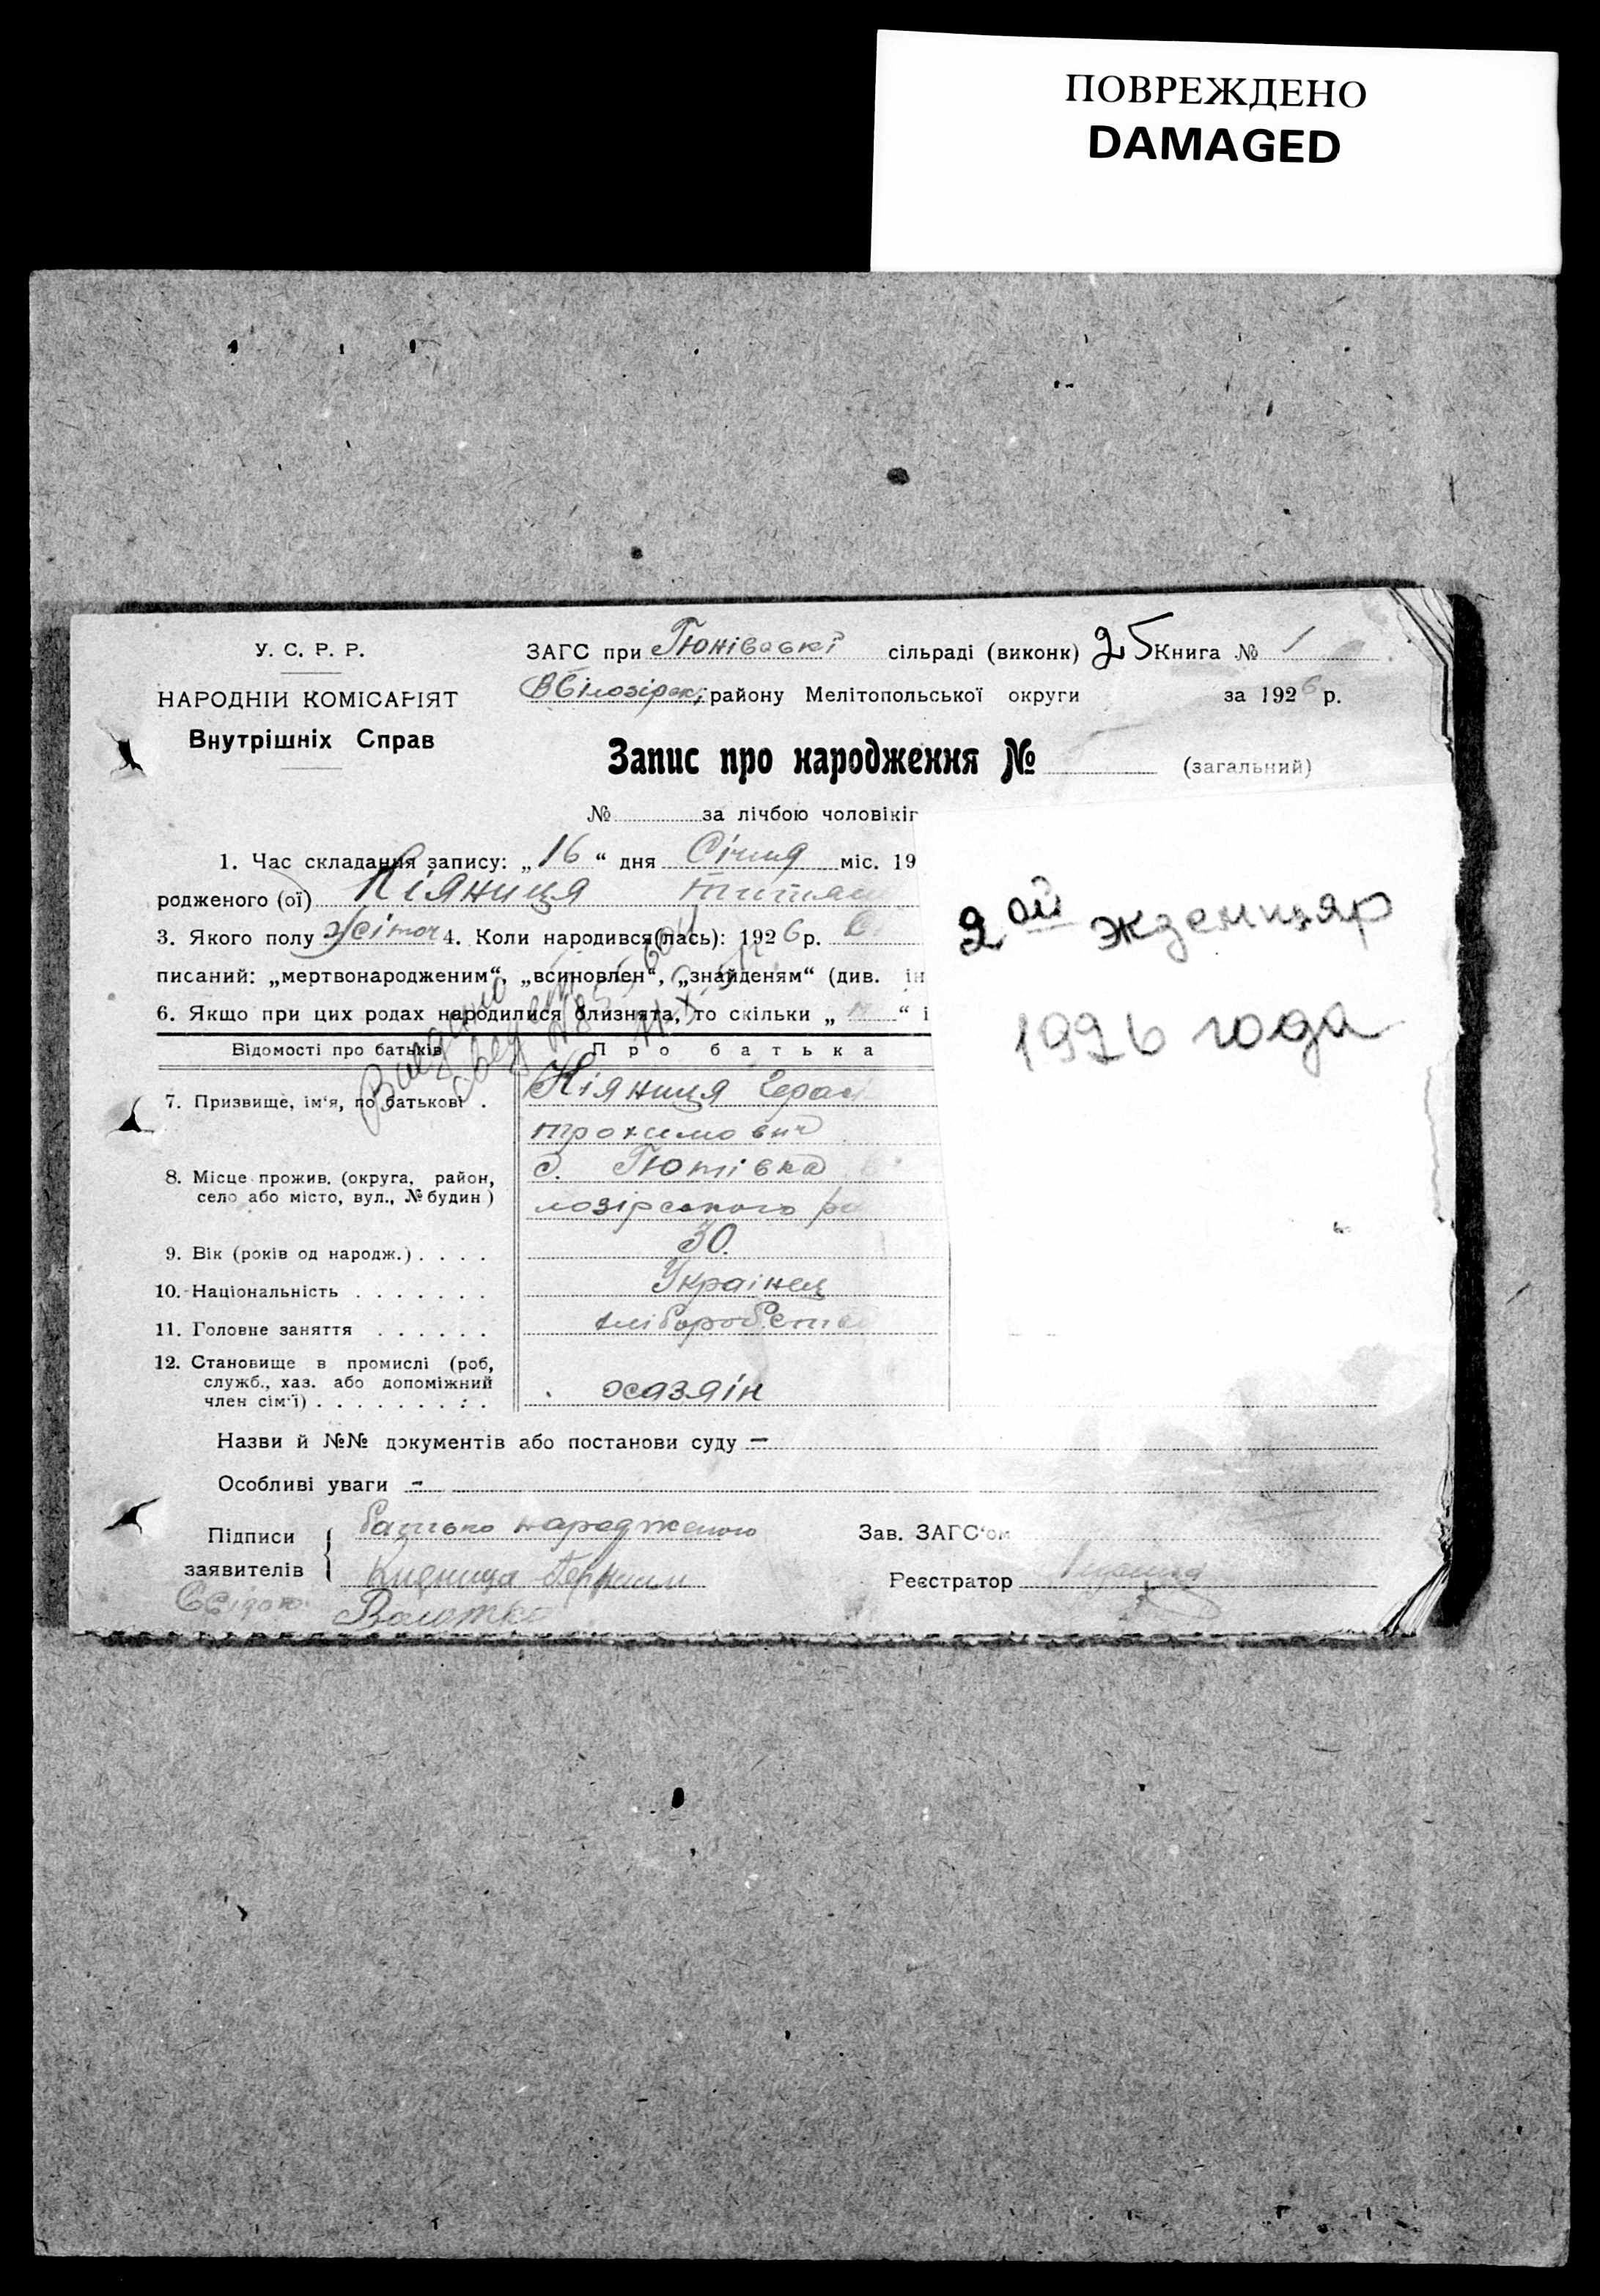 ПОВРЕЖДЕНО
DAMAGED
У. С. Р. Р.
НАРОДНІЙ КОМІСАРІЯТ
Внутрішніх Справ
ЗАГС при Гюнівські сільраді (виконк) 25 Книга № 1
ВБілозірск, району Мелітопольської округи за 1926 р.
Запис про народження № (загальний)
№ за лічбою чоловікіг
1. Час складання запису: „16“ дня Січня міс. 19
родженого (ої) Кіяниця
3. Якого полу жіноч 4. Коли народився(лась): 1926 р.
писаний: „мертвонародженим“, „всиновлен“, „знайденям“ (див. ін
6. Якщо при цих родах народилися близнята, то скільки „ “ і
Видано
Відомості про батьків
Про батька
7. Призвище, ім‘я, по батькові .
Кіяниця Герас
трохимович
8. Місце прожив. (округа, район,
село або місто, вул., № будин)
с. Гюнівка
лозірського ра
9. Вік (років од народж.) . . . .
30.
10. Національність . . . . . . .
Українец
11. Головне заняття . . . . . .
хліборобств
12. Становище в промислі (роб,
служб., хаз. або допоміжний
член сім‘ї) . . . . . . . . .
Назви й №№ документів або постанови суду —
Особливі уваги -
Підписи
заявителів
батько народженого
Кияница
Зав. ЗАГС‘ом
Реєстратор
2ой экземпляр
1926 года